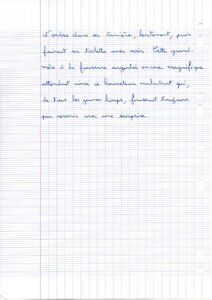 s'ordre dans sa tanière, lentement, puis
faisait sa toilette avec soin. Cette grand-
mère à la fourrure argentée encore magnifique
attendait ainsi ce louveteau maladroit qui,
de tous les jeunes loups, finissait toujours
par revenir avec une surprise.